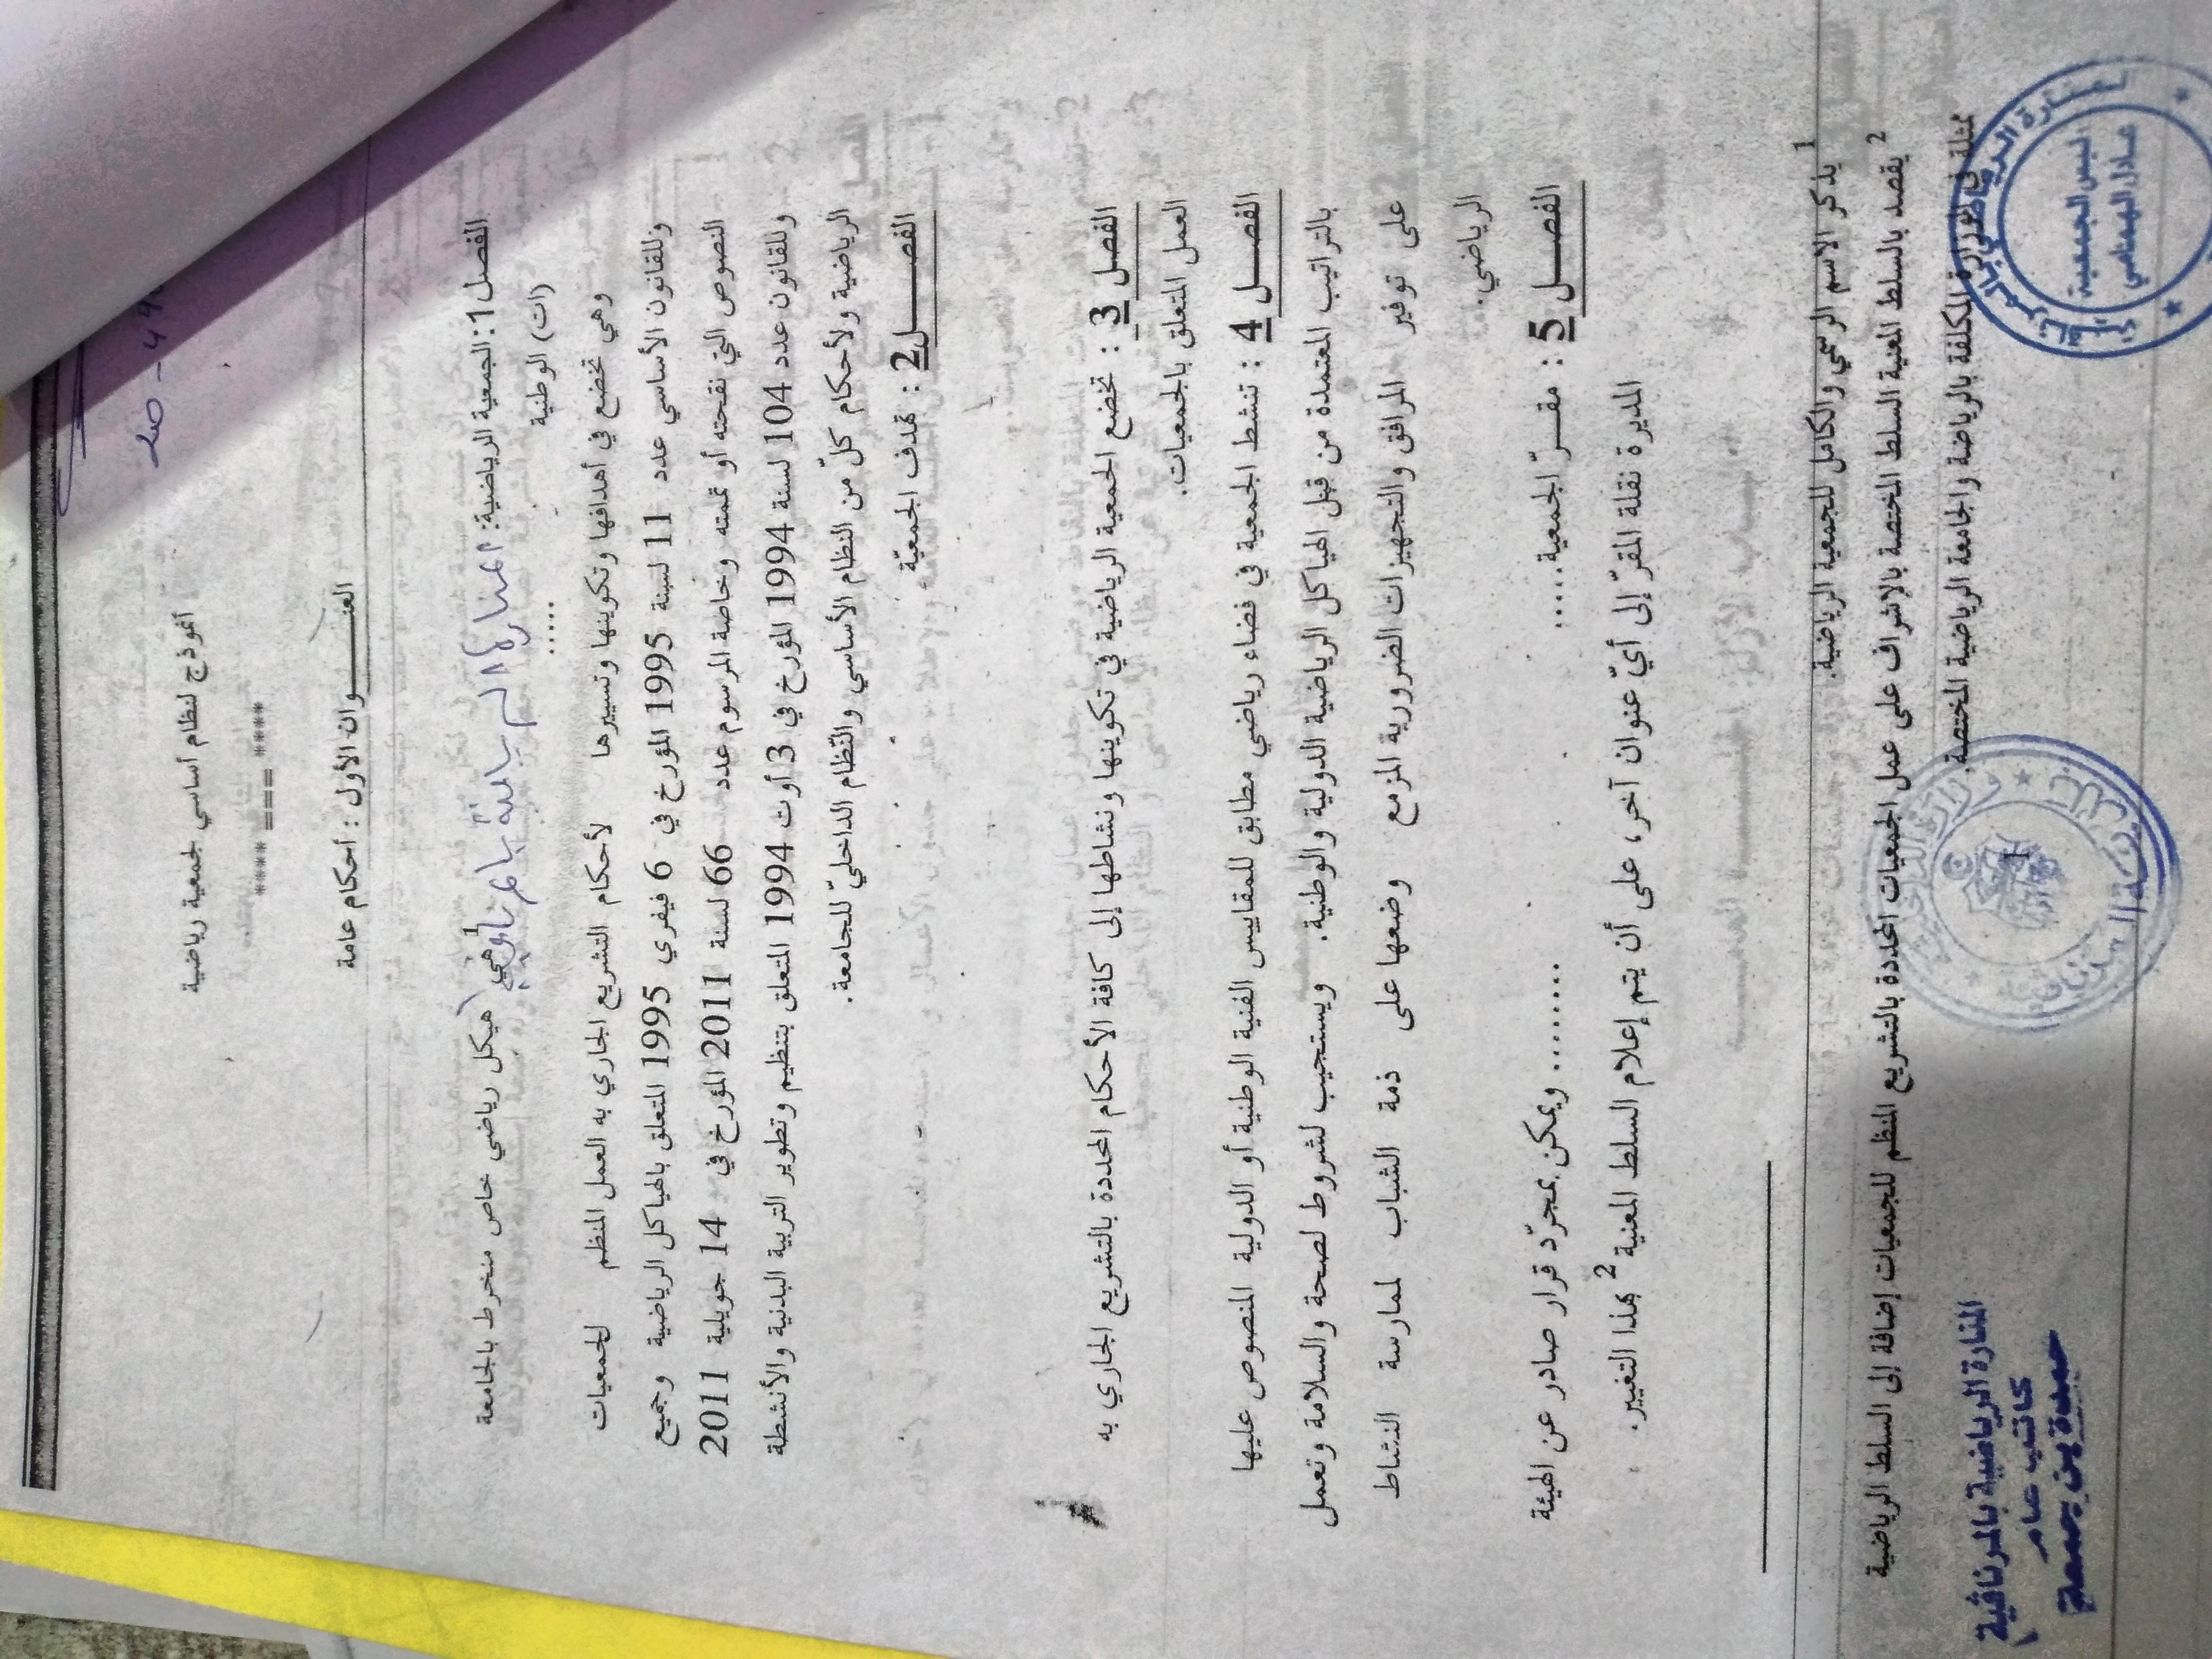 أنموذج لنظام أساسي لجمعية رياضية
**** === ****
العنـــــوان الأول : أحكام عامة
الفصل 1: الجمعية الرياضية: المنارة الرياضية بالمرناقية هي هيكل رياضي خاص منخرط بالجامعة
(ات) الوطنية .....
وهي تخضع في أهدافها وتكوينها وتسييرها لأحكام التشريع الجاري به العمل المنظم للجمعيات
وللقانون الأساسي عدد 11 لسنة 1995 المؤرخ في 6 فيفري 1995 المتعلق بالهياكل الرياضية وجميع
النصوص التي نقحته أو تممته وخاصة المرسوم عدد 66 لسنة 2011 المؤرخ في 14 جويلية 2011
وللقانون عدد 104 لسنة 1994 المؤرخ في 3 أوت 1994 المتعلق بتنظيم وتطوير التربية البدنية والأنشطة
الرياضية ولأحكام كلّ من النظام الأساسي والنّظام الداخليّ للجامعة.
الفصـــــل 2 : تهدف الجمعيّة
الفصل 3 : تخضع الجمعية الرياضية في تكوينها ونشاطها إلى كافة الأحكام المحددة بالتشريع الجاري به
العمل المتعلق بالجمعيات.
الفصـــل 4 : تنشط الجمعية في فضاء رياضي مطابق للمقاييس الفنية الوطنية أو الدولية المنصوص عليها
بالتراتيب المعتمدة من قبل الهياكل الرياضية الدولية والوطنية. ويستجيب لشروط لصحة والسلامة وتعمل
على توفير المرافق والتجهيزات الضرورية المزمع وضعها على ذمة الشباب لممارسة النشاط
الرياضي.
الفصـــل 5 : مقـــرّ الجمعية..... ......... ويمكن بمجرّد قرار صادر عن الهيئة
المديرة نقلة المقرّ إلى أيّ عنوان آخر، على أن يتم إعلام السلط المعنية 2 بهذا التغيير.
1 يذكر الاسم الرسمي والكامل للجمعية الرياضية.
2 يقصد بالسلط المعنية السلط المختصة بالإشراف على عمل الجمعيات المحددة بالتشريع المنظم للجمعيات إضافة إلى السلط الرياضية
ممثلة في الوزارة المكلفة بالرياضة والجامعة الرياضية المختصة.
1
المنارة الرياضية بالمرناقية
كاتب عام
حميدة بن جمعة
المنارة الرياضية بالمرناقية
رئيس الجمعية